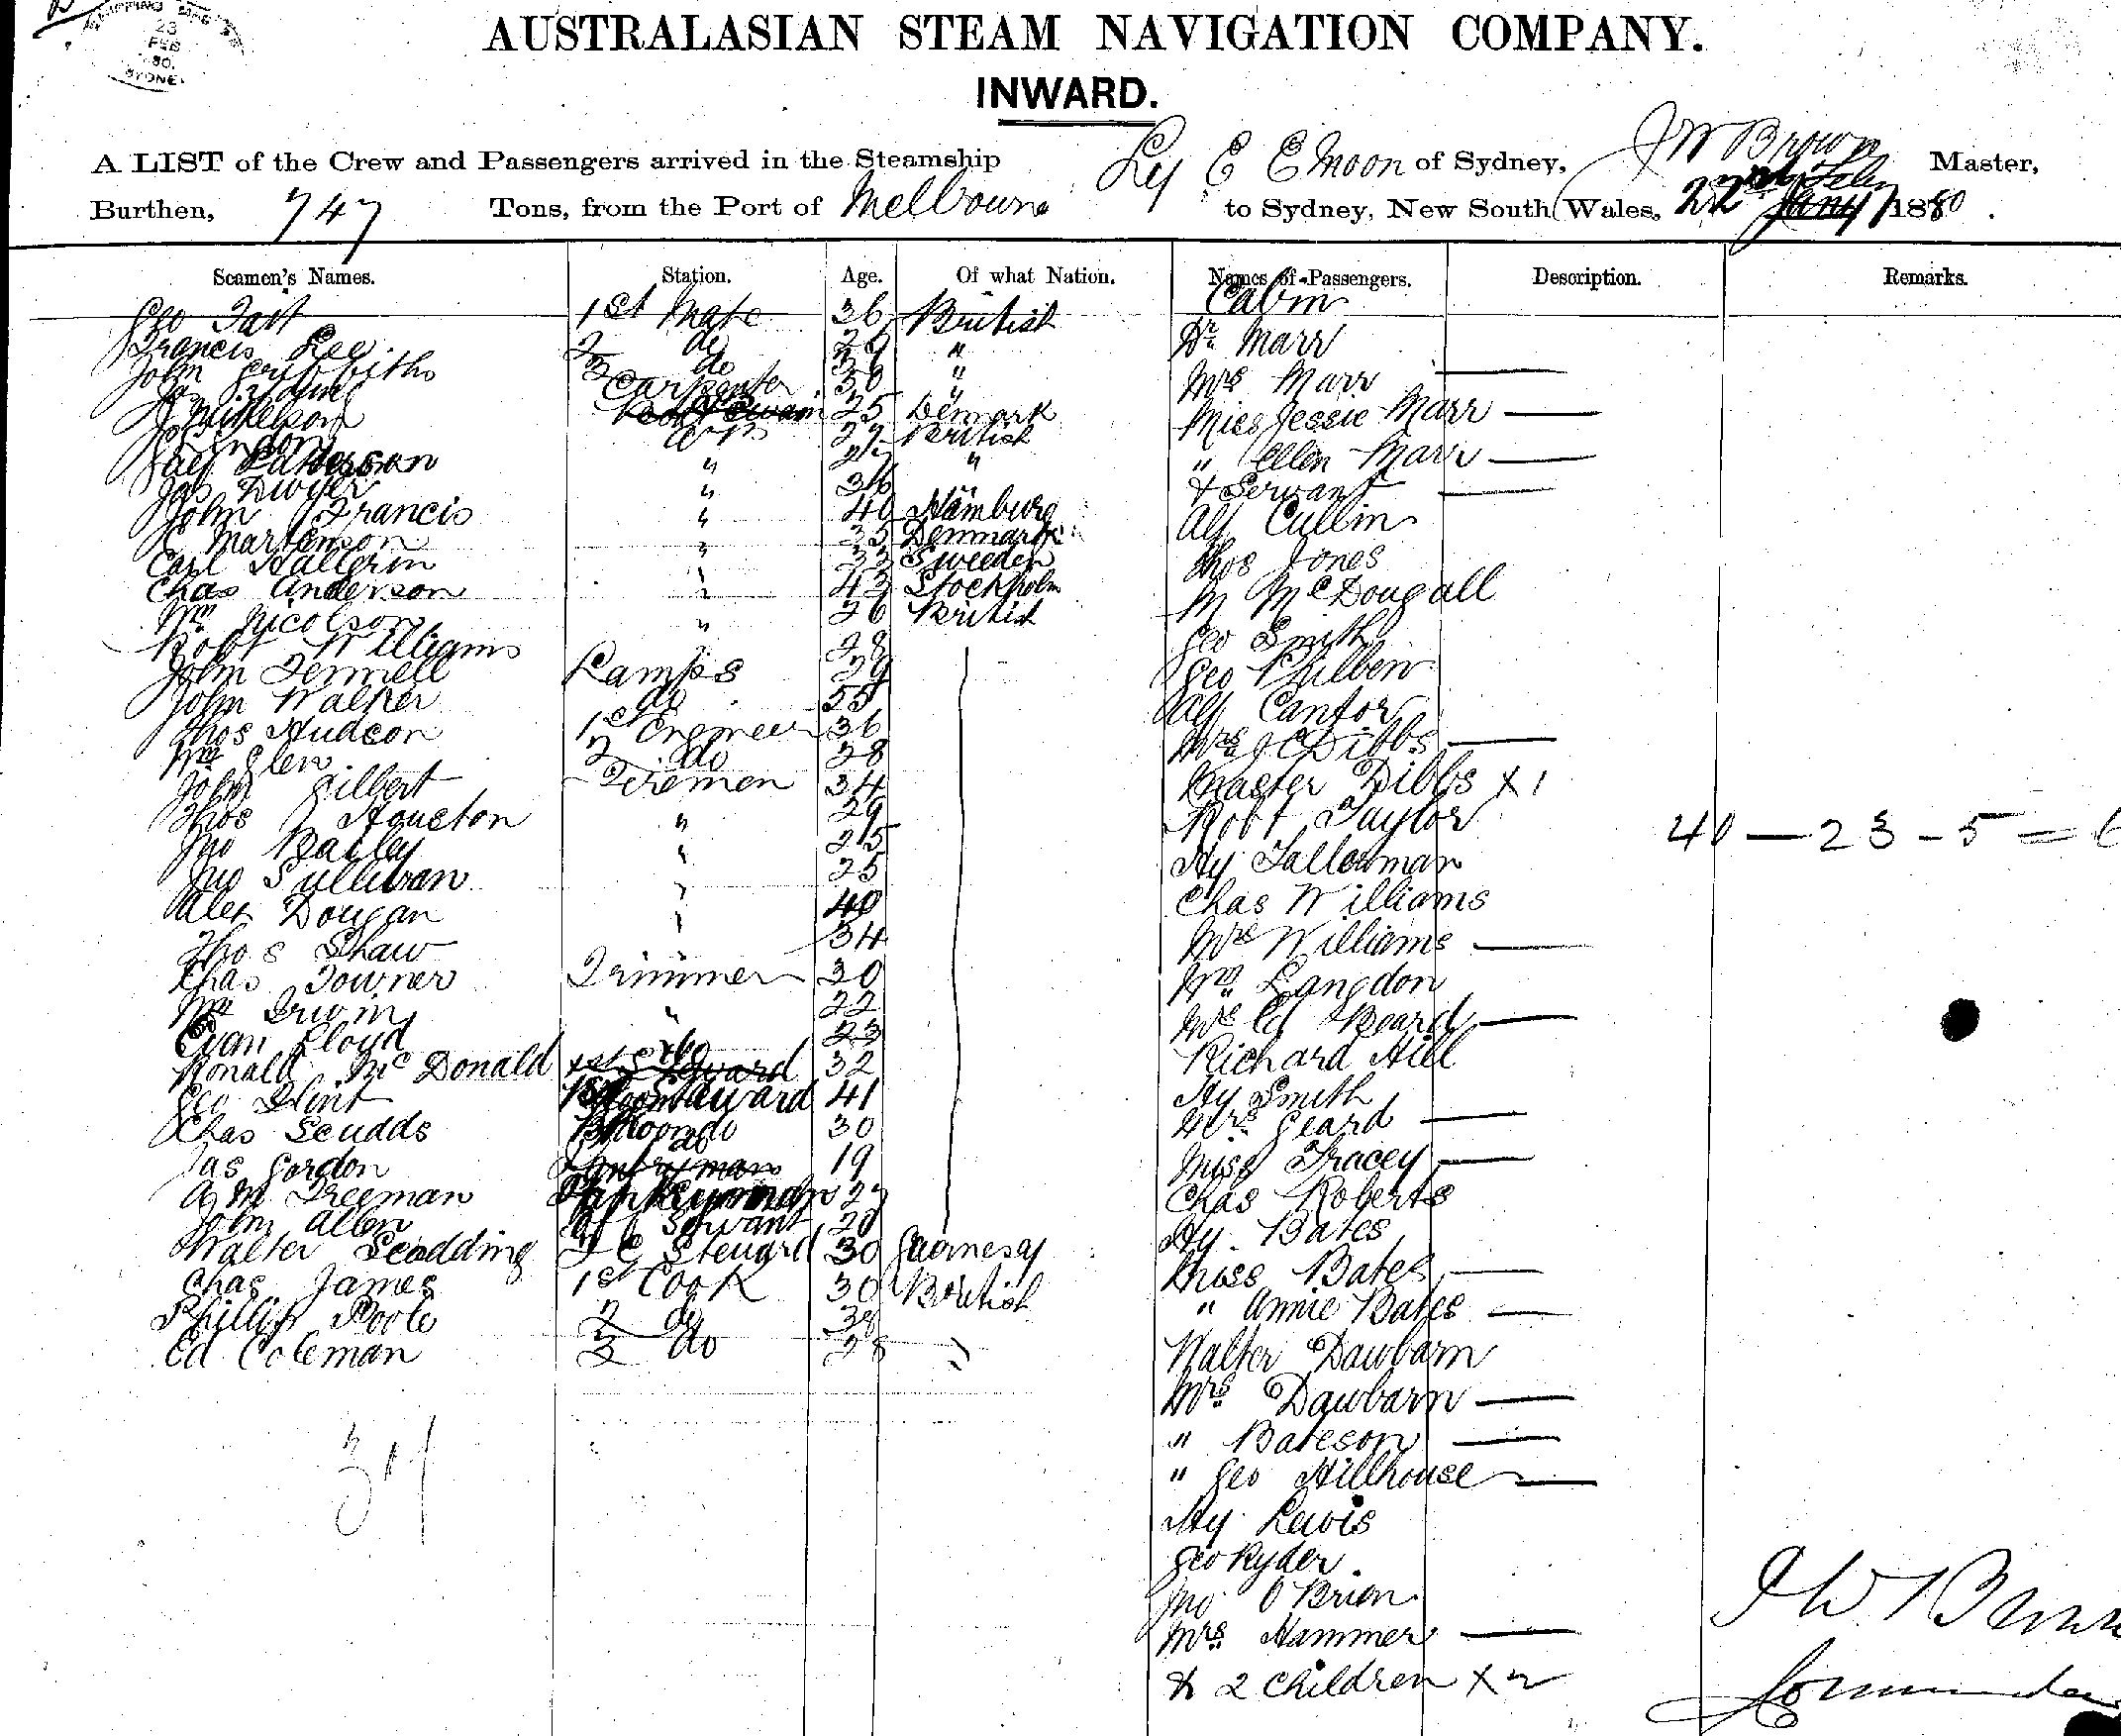 SHIPPING MASTER
23
FEB
80
SYDNEY
AUSTRALASIAN STEAM NAVIGATION COMPANY.
INWARD.
A LIST of the Crew and Passengers arrived in the Steamship Ly E E Moon of Sydney, J W Brown Master,
Burthen, 747 Tons, from the Port of Melbourne to Sydney, New South Wales, 22nd Feby 1880.
Seamen's Names. Station. Age. Of what Nation. Names of Passengers. Description. Remarks.
Cabin
Geo Tait 1st Mate 36 British
Dr Marr
Francis Lee 2 do "
John Griffiths 3 do "
Mrs Marr —
Carpenter 30 "
J Mikelson 25 Denmark
Miss Jessie Marr —
AB 27 British
Patterson " "
" Ellen Marr —
Jas Dwyer " 36 "
& Servant —
John Francis " 40 Hamburg
Alf Cullin
Martenson " 35 Denmark
Carl Hallgrin " 33 Sweden
Thos Jones
Chas Anderson " 43 Stockholm
M McDougall
Wm Nicolson " 26 British
Geo Smith
Robt Williams " 28
John Fennell Lamps 29
Geo Philben
John Walker do 55
Alf Cantor
Thos Hudson 1st Engineer 36
Mrs J C Dibbs —
Wm Glen 2 do 28
John Gilbert Firemen 34
Master Dibbs x 1
Thos Houston " 29
Robt Taylor
Jno Bailey " 25
40 — 23 - 5 =
Jno Sullivan " 25
Hy Tallerman
Alex Dougan " 40
Chas Williams
Thos Shaw 34
Mrs Williams —
Chas Towner Trimmer 30
Wm Langdon
Wm Irwin " 22
Mrs Ed Beard —
Evan Lloyd do 23
Richard Hill
Ronald McDonald 1st Steward 32
Geo Flint 41
Hy Smith
Chas Scudds 30
Mrs Geard —
Jas Gordon 19
Miss Tracey —
A M Freeman Pantryman 27
Chas Roberts
John Allen Servant 20
Hy Bates
Walter Scadding F C Steward 30 Guernesay
Miss Bates —
Chas James 1st Cook 30 British
" Annie Bates —
Phillip Poole 2 do 38
Ed Coleman 3 do 28 "
Walter Dawbarn
Mrs Dawbarn —
" Bateson —
" Geo Hillhouse —
Hy Lewis
Geo Ryder
Jno O Brien
J W Brown
Mrs Hammer —
& 2 Children x 2
Commander